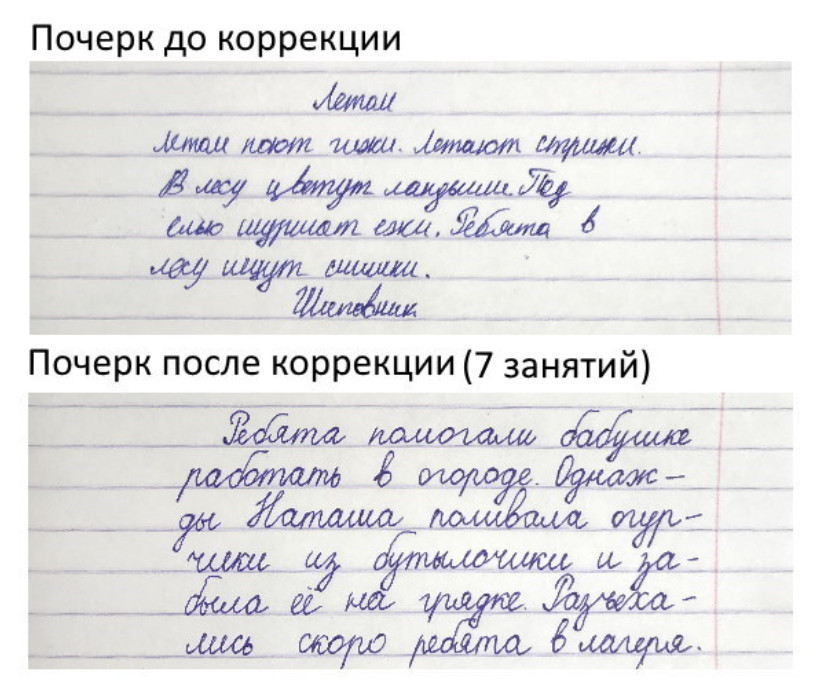 Почерк до коррекции
Летом
Летом поют чижи. Летают стрижи.
В лесу цветут ландыши. Под
елью шуршат ежи. Ребята в
лесу ищут шишки.
Шиповник
Почерк после коррекции (7 занятий)
Ребята помогали бабушке
работать в огороде. Однаж-
ды Наташа поливала огур-
чики из бутылочики и за-
была её на грядке. Разъеха-
лись скоро ребята в лагеря.